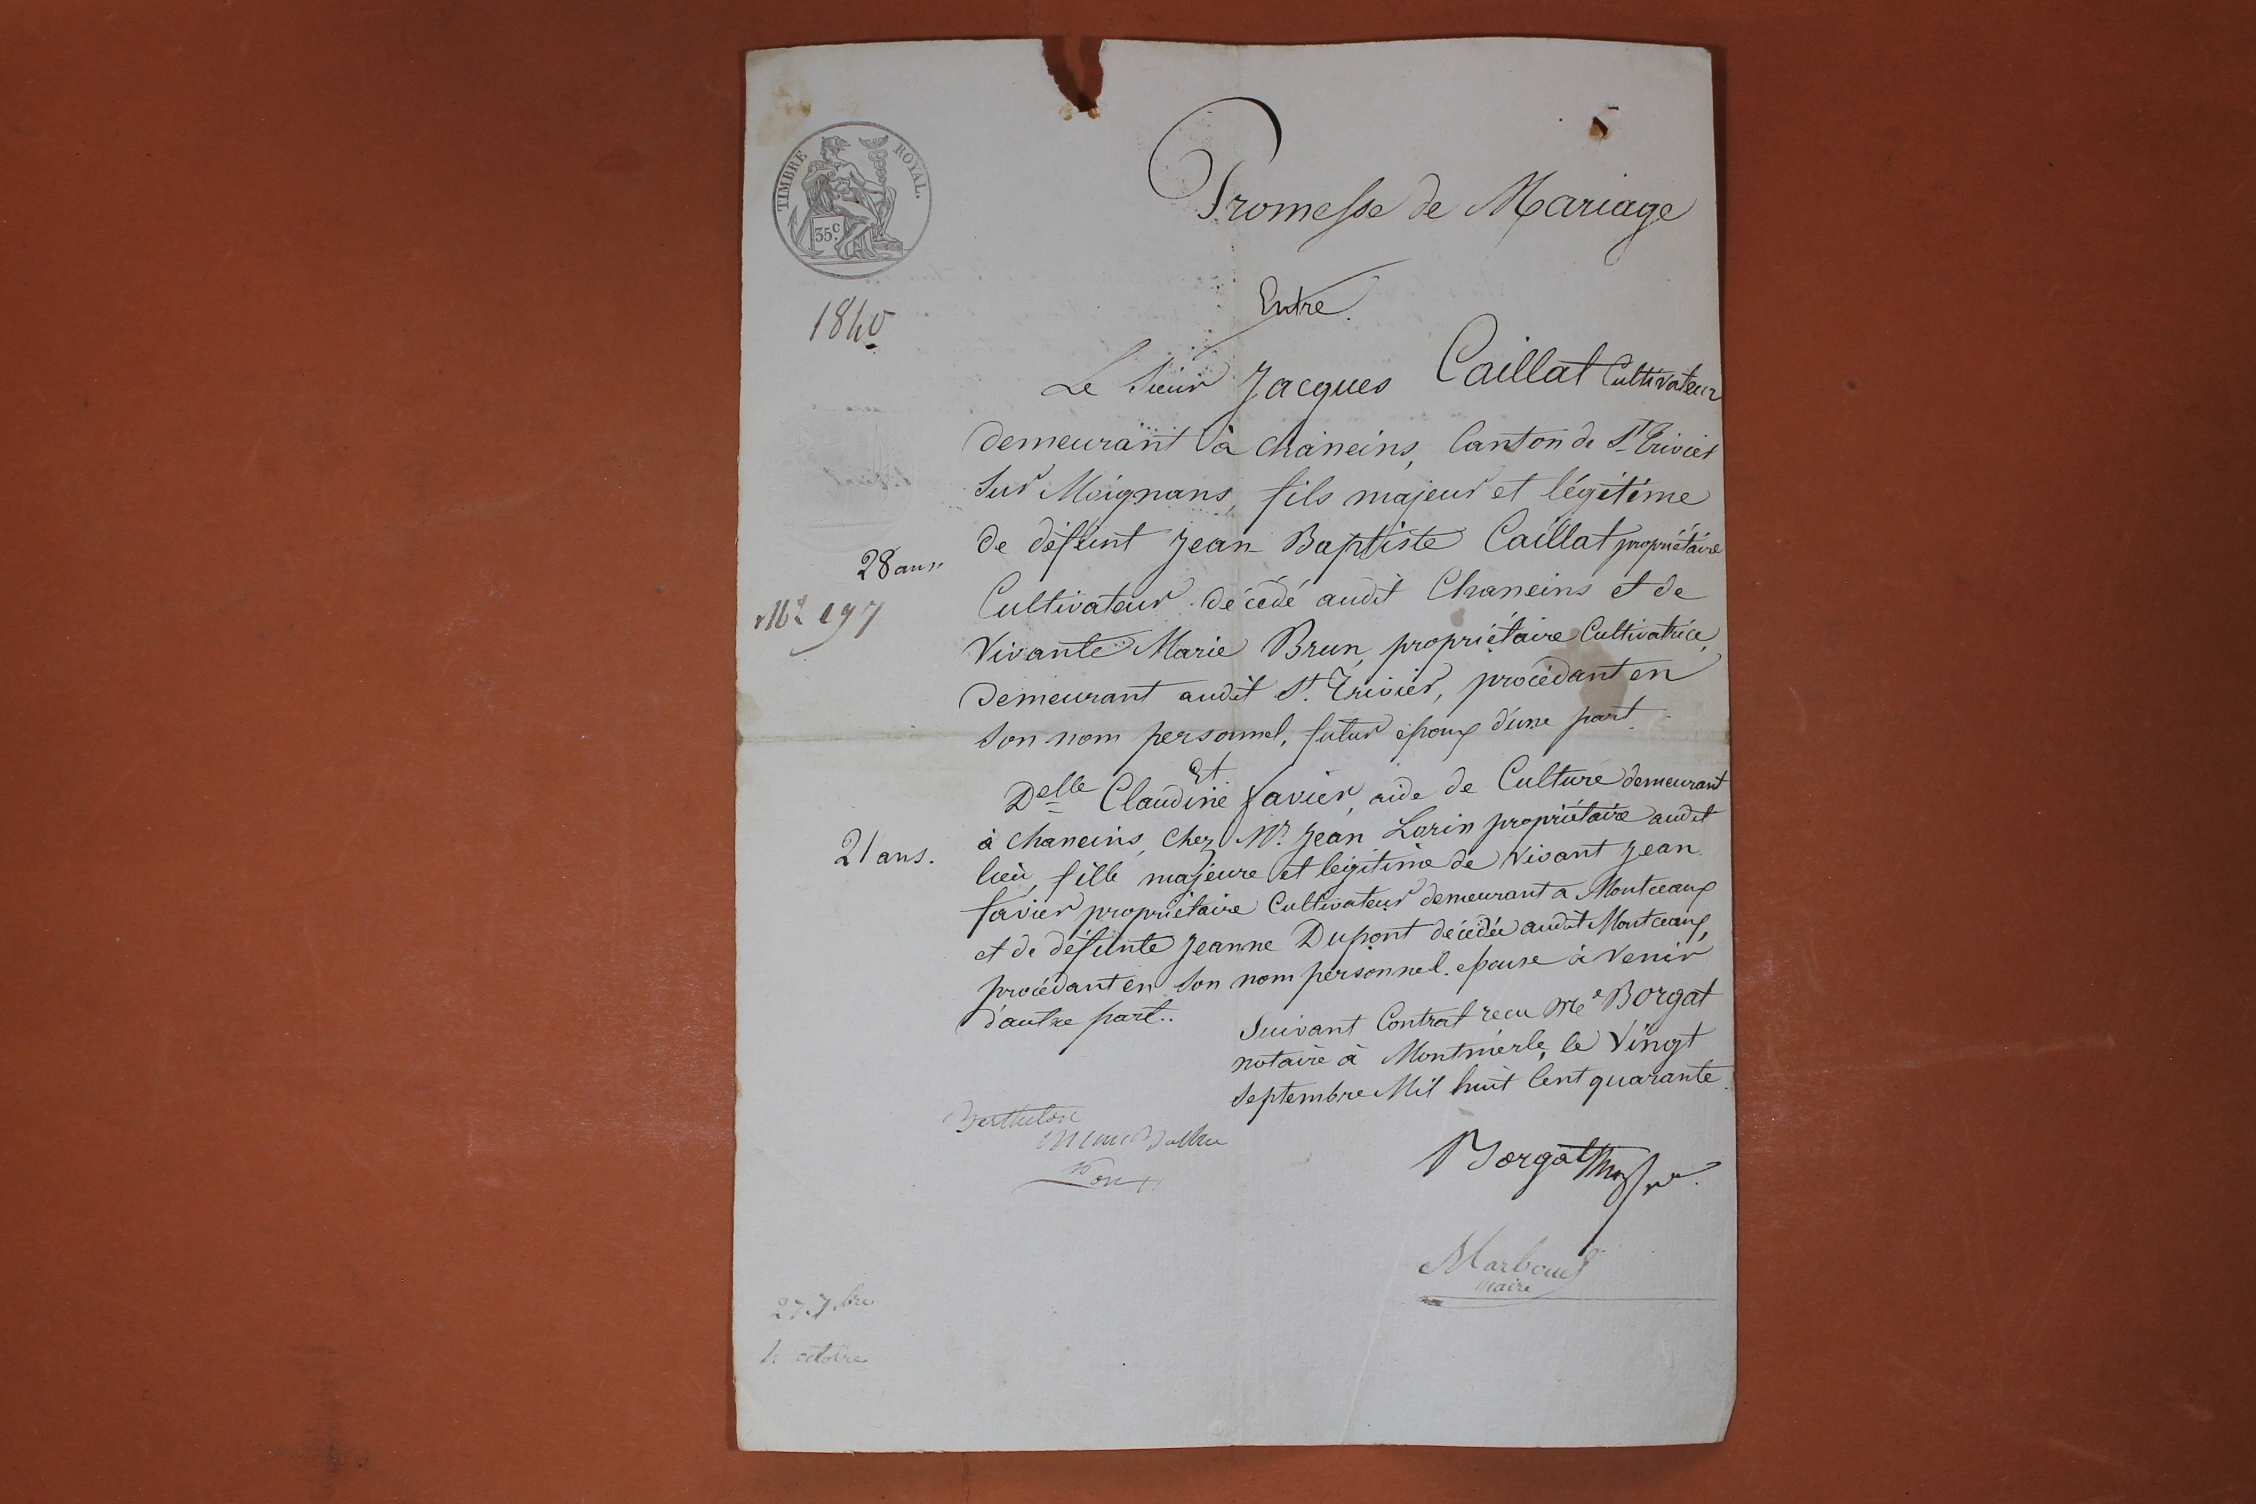 TIMBRE ROYAL.
35 c.
1840
Promesse de Mariage
Entre.
Le Sieur Jacques Caillat Cultivateur
demeurant à chaneins, Canton de St Trivier
Sur Moignans, fils majeur et légitime
de défunt Jean Baptiste Caillat propriétaire
28 ans
Cultivateur décédé audit Chaneins et de
197
Vivante Marie Brun, propriétaire Cultivatrice,
Demeurant audit St. Trivier, procédant en
Son nom personnel, futur époux d'une part.
Et
Delle Claudine favier, aide de Culture demeurant
à chaneins, chez Mr. Jean Lorin propriétaire audit
21 ans.
lieu, fille majeure et légitime de vivant Jean
favier propriétaire Cultivateur demeurant a Montceaux
et de défunte Jeanne Dupont décédée audit Montceaux,
procédant en Son nom personnel. epouse à venir
d'autre part..
Suivant Contrat recu Me Borgat
notaire à Montmerle, le Vingt
Septembre Mil huit Cent quarante.
Borgat
maire
27 7bre
4 octobre